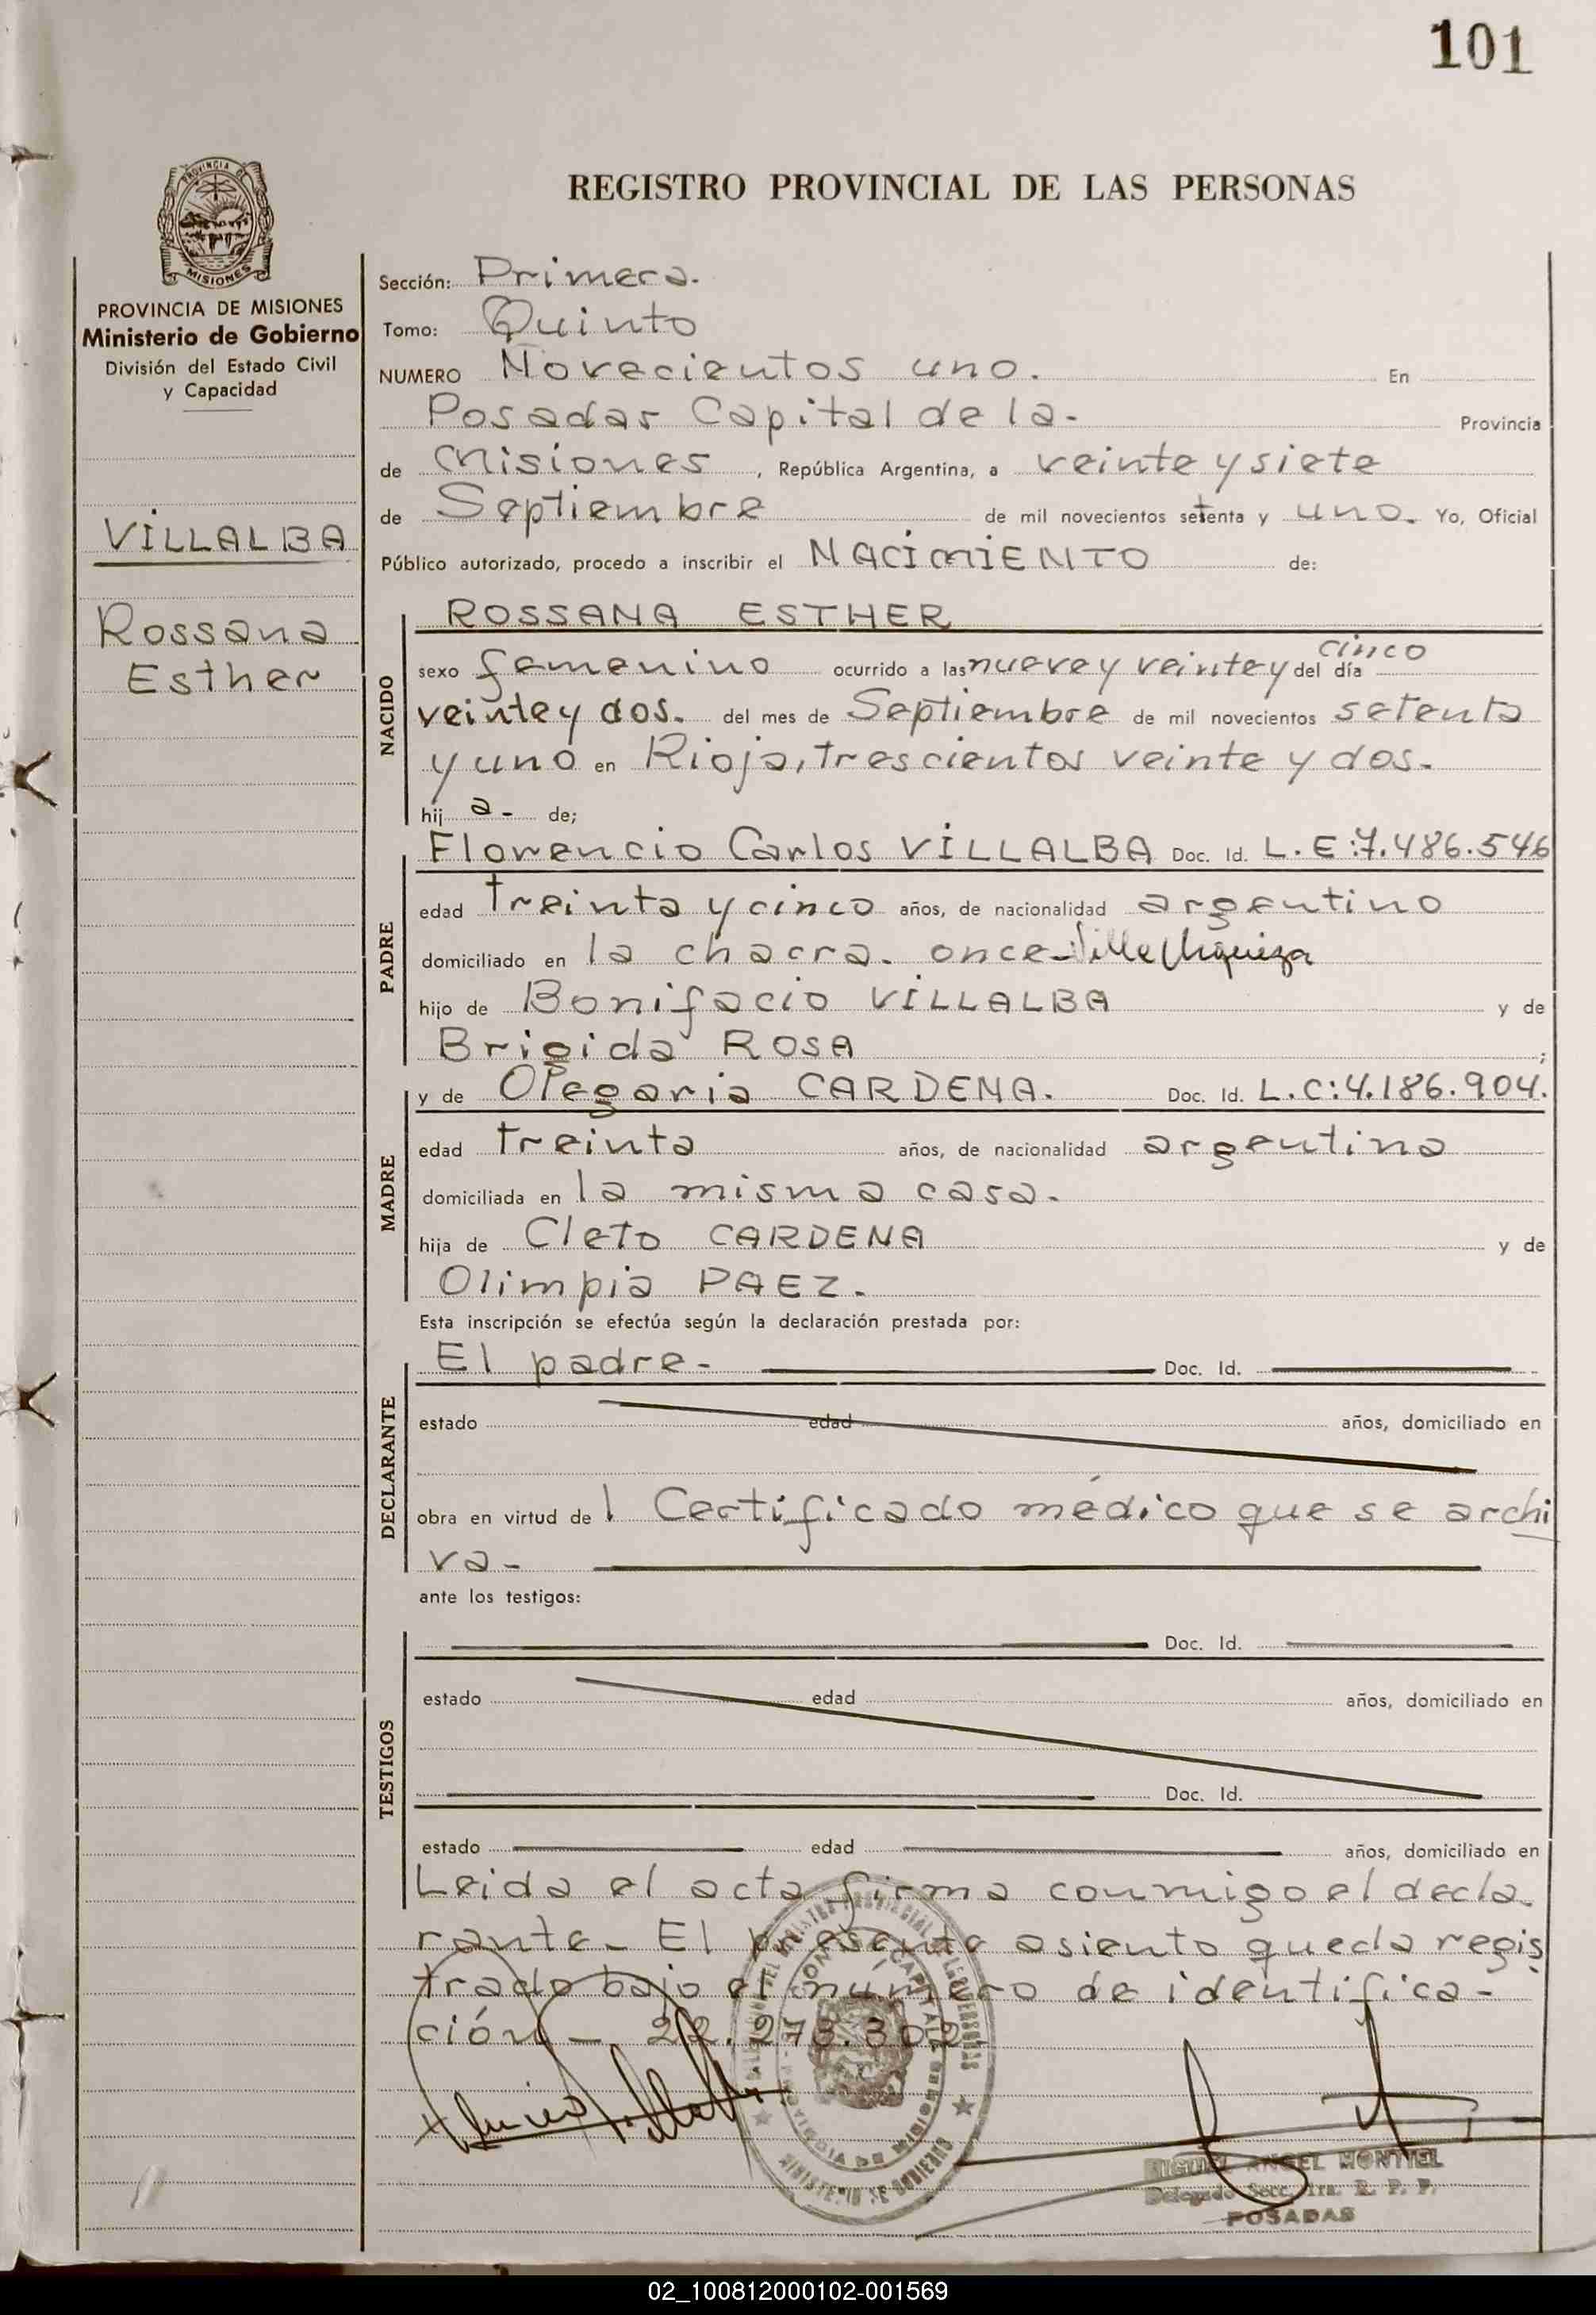 101
PROVINCIA DE
MISIONES
REGISTRO PROVINCIAL DE LAS PERSONAS
PROVINCIA DE MISIONES
Ministerio de Gobierno
División del Estado Civil
y Capacidad
VILLALBA
Rossana
Esther
Sección: Primera.
Tomo: Quinto
NUMERO Novecientos uno. En
Posadas Capital de la - Provincia
de Misiones, República Argentina, a veinte y siete
de Septiembre de mil novecientos setenta y uno. Yo, Oficial
Público autorizado, procedo a inscribir el NACIMIENTO de:
NACIDO
ROSSANA ESTHER
cinco
sexo femenino ocurrido a las nueve y veinte y del día
veinte y dos. del mes de Septiembre de mil novecientos setenta
y uno en Rioja, trescientos veinte y dos.
hij a - de;
PADRE
Florencio Carlos VILLALBA Doc. Id. L.E:7.486.546
edad treinta y cinco años, de nacionalidad argentino
domiciliado en la chacra. once - Villa Urquiza
hijo de Bonifacio VILLALBA y de
Brigida ROSA ;
MADRE
y de Olegaria CARDENA. Doc. Id. L.C:4.186.904.
edad treinta años, de nacionalidad argentina
domiciliada en la misma casa.
hija de Cleto CARDENA y de
Olimpia PAEZ.
Esta inscripción se efectúa según la declaración prestada por:
DECLARANTE
El padre - Doc. Id.
estado edad años, domiciliado en
obra en virtud de l Certificado médico que se archi
va -
ante los testigos:
TESTIGOS
Doc. Id.
estado edad años, domiciliado en
Doc. Id.
estado edad años, domiciliado en
Leida el acta firma conmigo el decla
rante. El presente asiento queda regis
trado bajo el número de identifica -
ción - 22.273.302
MINISTERIO DE GOBIERNO
PROVINCIA DE MISIONES
MIGUEL ANGEL MONTIEL
Delegado Secc. 1ra. R. P. P.
POSADAS
02_100812000102-001569